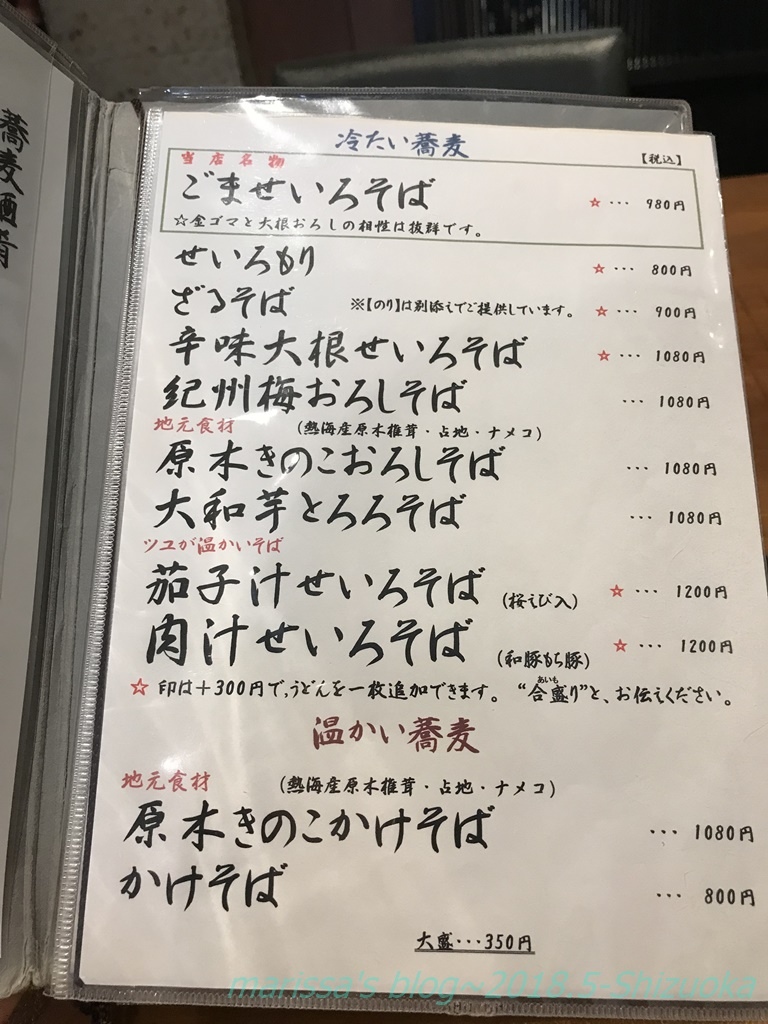 蕎麦酒肴
冷たい蕎麦
【税込】
当店名物
ごませいろそば ☆… 980円
☆金ゴマと大根おろしの相性は抜群です。
せいろもり ☆… 800円
ざるそば ※【のり】は別添えでご提供しています。 ☆… 900円
辛味大根せいろそば ☆… 1080円
紀州梅おろしそば … 1080円
地元食材 (熱海産原木椎茸・占地・ナメコ)
原木きのこおろしそば … 1080円
大和芋とろろそば … 1080円
ツユが温かいそば
茄子汁せいろそば (桜えび入) ☆… 1200円
肉汁せいろそば (和豚もち豚) ☆… 1200円
☆印は+300円で、うどんを一枚追加できます。“合盛り”と、お伝えください。
あいも
温かい蕎麦
地元食材 (熱海産原木椎茸・占地・ナメコ)
原木きのこかけそば … 1080円
かけそば … 800円
大盛…350円
marissa's blog~2018.5-Shizuoka